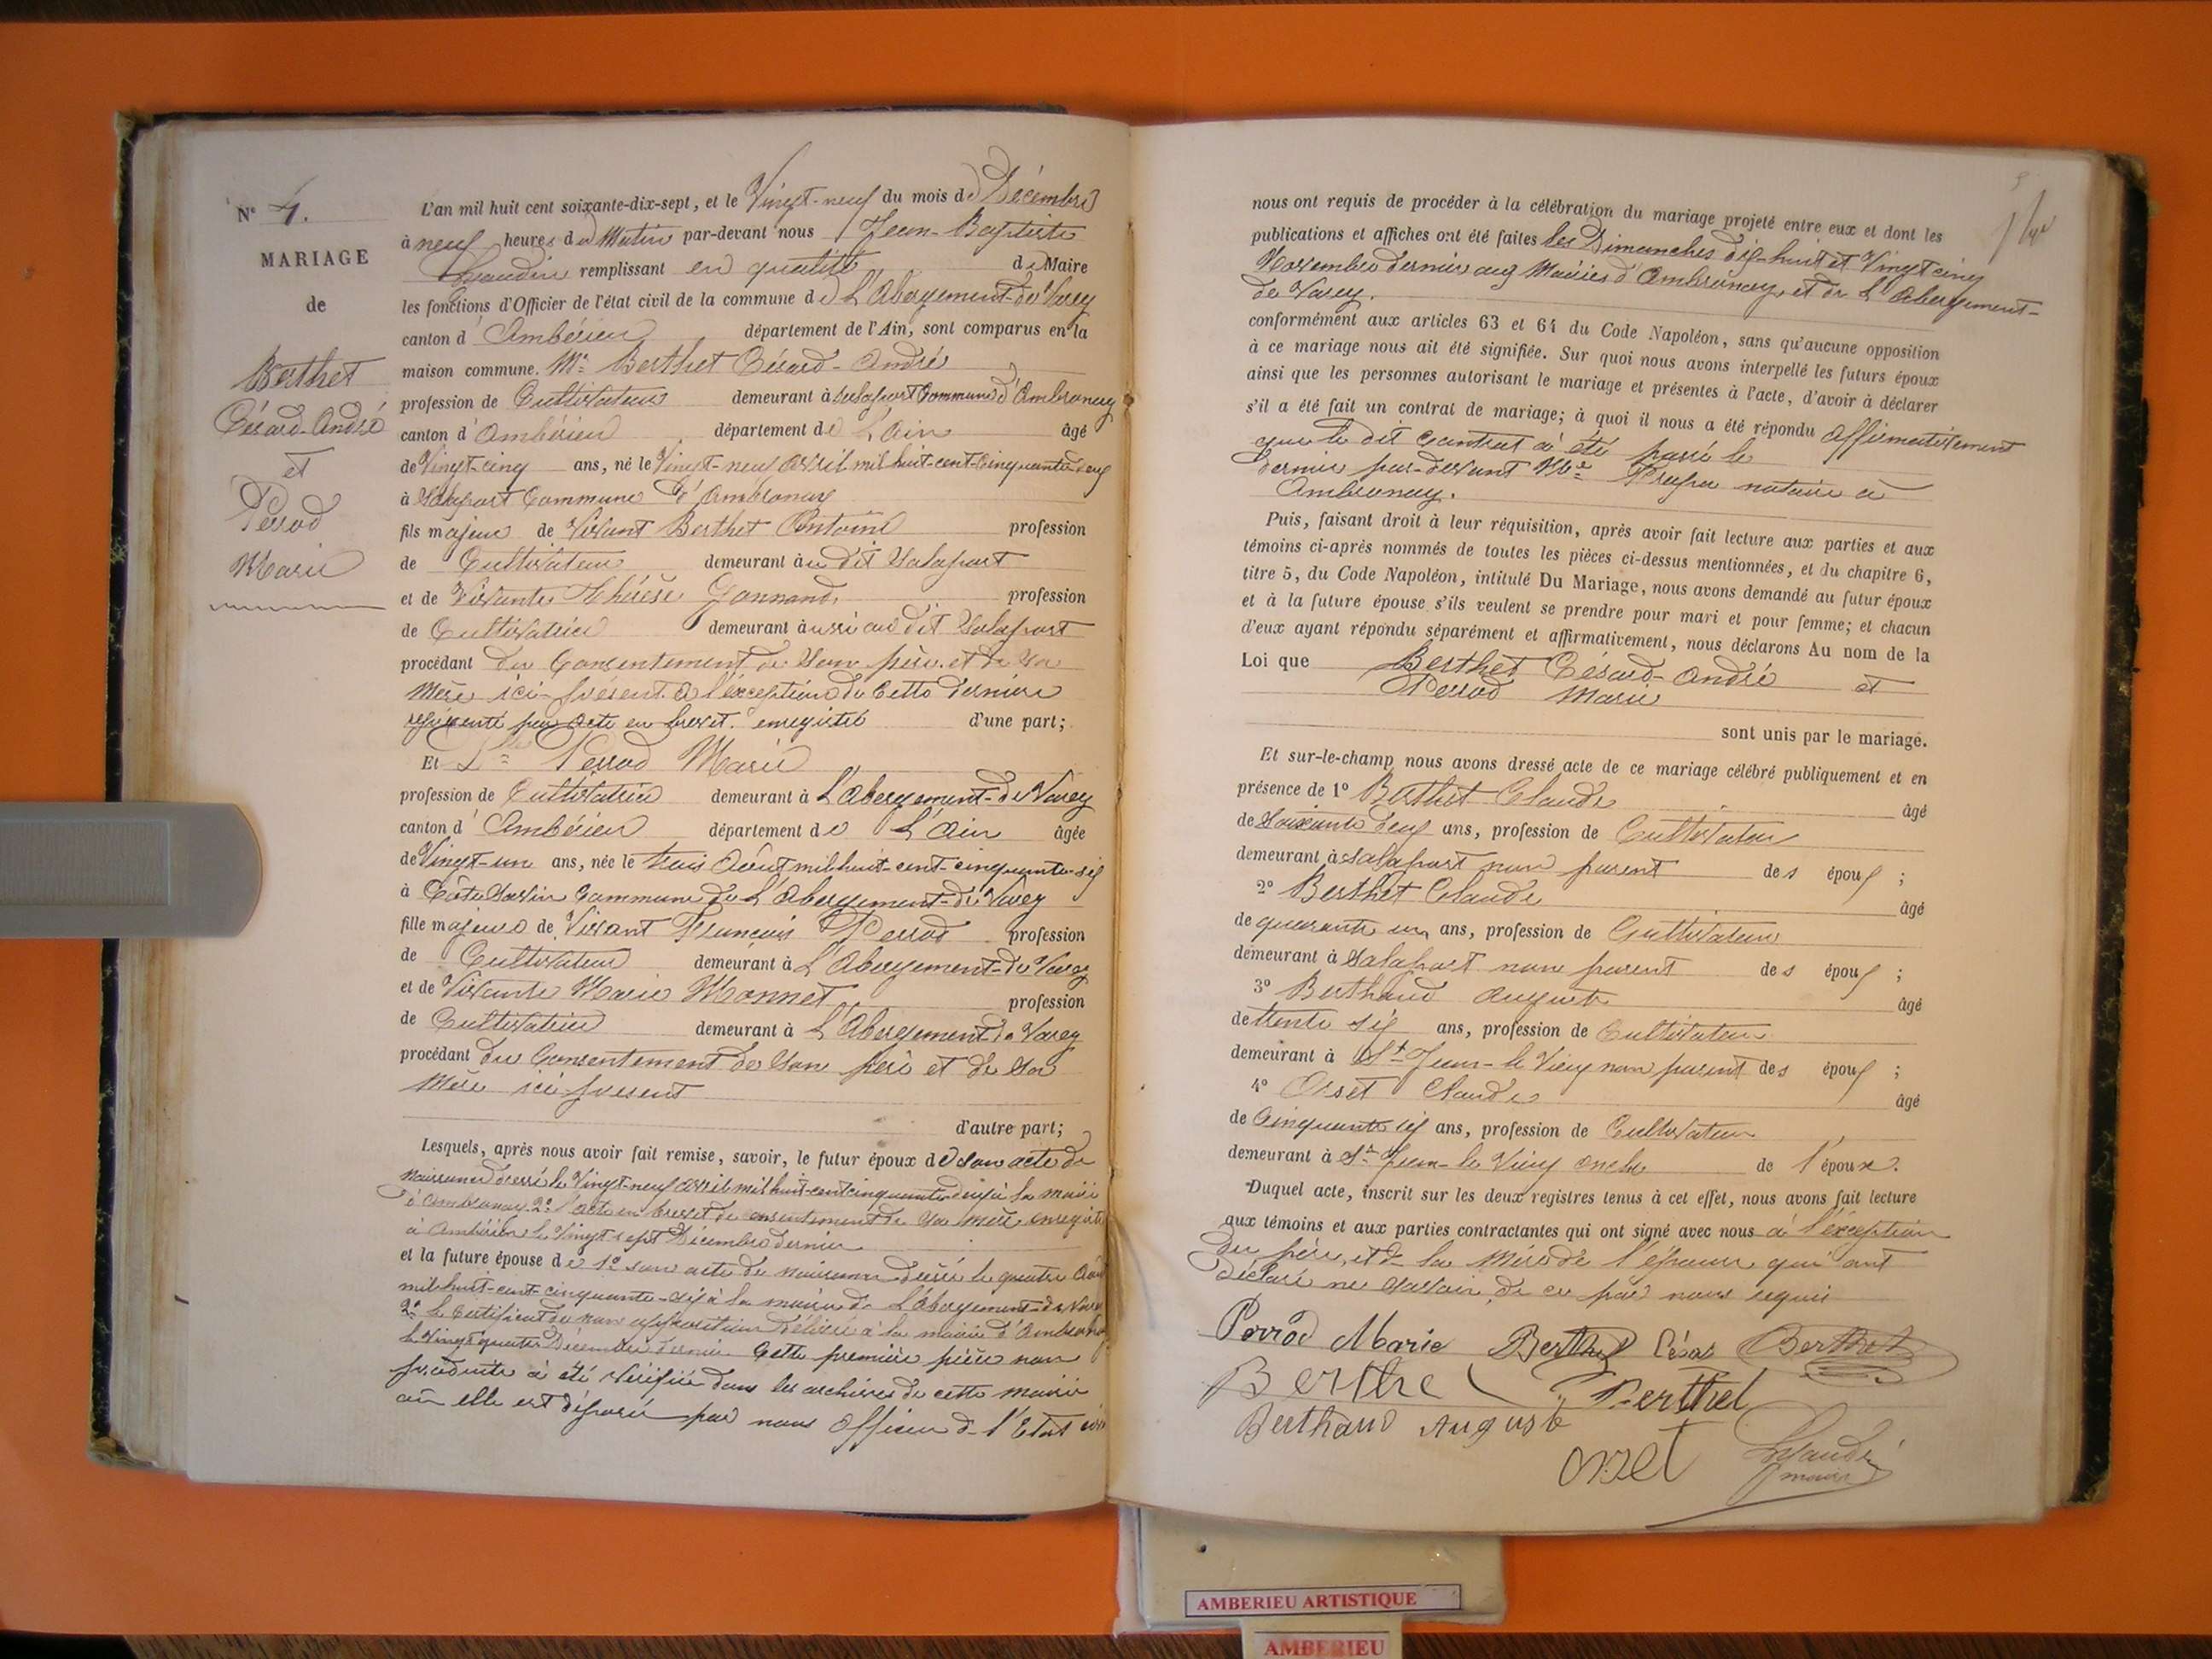 N° 4.
MARIAGE
de
Berthet
Césard-André
et
Perrod
Marie
L'an mil huit cent soixante-dix-sept, et le Vingt-neuf du mois de Décembre
à neuf heures du Matin par-devant nous Jean-Baptiste
remplissant en qualité de Maire
les fonctions d'Officier de l'état civil de la commune de L'Abergement-de Varey
canton d' Ambérieu département de l'Ain, sont comparus en la
maison commune. Mr Berthet Césard-André
profession de Cultivateur demeurant à Salaport Commune d'Ambronay
canton d' Ambérieu département de L'Ain âgé
de Vingt-cinq ans, né le Vingt-neuf Avril mil huit-cent-cinquante-deux
à Salaport Commune d'Ambronay
fils majeur de Vivant Berthet Antoine profession
de Cultivateur demeurant au dit Salaport
et de Vivante Thérèse Gonnand profession
de Cultivatrice demeurant aussi au dit Salaport
procédant du Consentement de Son père et de Sa
Mère ici-présent à l'exception de Cette dernière
représenté par acte en brevet enregistré d'une part;
Et Dlle Perrod Marie
profession de Cultivatrice demeurant à L'Abergement-de Varey
canton d' Ambérieu département de L'Ain âgée
de Vingt-un ans, née le trois Août mil huit-cent-cinquante-six
à Côte Savin Commune de L'Abergement-de Varey
fille majeure de Vivant François Perrod profession
de Cultivateur demeurant à L'Abergement-de Varey
et de Vivante Marie Monnet profession
de Cultivatrice demeurant à L'Abergement-de Varey
procédant du Consentement de Son père et de Sa
Mère ici-présent
d'autre part;
Lesquels, après nous avoir fait remise, savoir, le futur époux de Son acte de
Naissance dressé le Vingt-neuf Avril mil huit-cent cinquante-deux à la mairie
d'Ambronay 2° l'acte en brevet de consentement de Sa mère enregistré
à Ambérieu le Vingt sept Décembre dernier
et la future épouse de 1° son acte de naissance dressé le quatre Août
mil huit-cent-cinquante-six à la mairie de L'Abergement-de Varey
2° le Certificat de non opposition délivré à la mairie d'Ambronay
le Vingt quatre Décembre dernier. Cette première pièce non
produite à été vérifiée dans les archives de cette mairie
où elle est déposée par nous Officier de l'Etat civil
nous ont requis de procéder à la célébration du mariage projeté entre eux et dont les
publications et affiches ont été faites les Dimanches dix-huit et Vingt cinq
Novembre dernier aux Mairies d'Ambronay et de L'Abergement-
de Varey.
conformément aux articles 63 et 64 du Code Napoléon, sans qu'aucune opposition
à ce mariage nous ait été signifiée. Sur quoi nous avons interpellé les futurs époux
ainsi que les personnes autorisant le mariage et présentes à l'acte, d'avoir à déclarer
s'il a été fait un contrat de mariage; à quoi il nous a été répondu affirmativement
que le dit Contrat à été passé le
dernier par-devant Me notaire à
Ambronay.
Puis, faisant droit à leur réquisition, après avoir fait lecture aux parties et aux
témoins ci-après nommés de toutes les pièces ci-dessus mentionnées, et du chapitre 6,
titre 5, du Code Napoléon, intitulé Du Mariage, nous avons demandé au futur époux
et à la future épouse s'ils veulent se prendre pour mari et pour femme; et chacun
d'eux ayant répondu séparément et affirmativement, nous déclarons Au nom de la
Loi que Berthet Césard-André et
Perrod Marie
sont unis par le mariage.
Et sur-le-champ nous avons dressé acte de ce mariage célébré publiquement et en
présence de 1° Berthet Claude âgé
de Soixante deux ans, profession de Cultivateur
demeurant à Salaport non parent des époux ;
2° Berthet Claude âgé
de quarante un ans, profession de Cultivateur
demeurant à Salaport non parent des époux ;
3° Berthaud Auguste âgé
de trente six ans, profession de Cultivateur
demeurant à St Jean-le Vieux non parent des époux ;
4° Orset Claude âgé
de Cinquante six ans, profession de Cultivateur
demeurant à St Jean-le Vieux oncle de l'épouse.
Duquel acte, inscrit sur les deux registres tenus à cet effet, nous avons fait lecture
aux témoins et aux parties contractantes qui ont signé avec nous à l'exception
du père et de la Mère de l'épouse qui ont
déclaré ne Savoir de ce par nous requis
Perrod Marie Berthet César Berthet
Berthet Berthet
Berthaud Auguste
orset
maire
AMBERIEU ARTISTIQUE
AMBERIEU